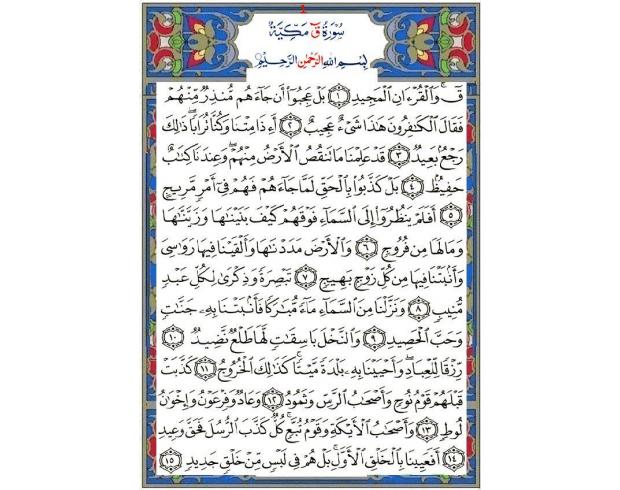 1
سُورَةُ قٓ مَكِّيَّةٌ
بِسْمِ اللهِ الرَّحْمٰنِ الرَّحِيْمِ
قٓ ۚ وَالْقُرْءَانِ الْمَجِيدِ ﴿١﴾ بَلْ عَجِبُوٓا أَن جَآءَهُم مُّنذِرٌ مِّنْهُمْ
فَقَالَ الْكَٰفِرُونَ هَٰذَا شَىْءٌ عَجِيبٌ ﴿٢﴾ أَءِذَا مِتْنَا وَكُنَّا تُرَابًا ۖ ذَٰلِكَ
رَجْعٌۢ بَعِيدٌ ﴿٣﴾ قَدْ عَلِمْنَا مَا تَنقُصُ الْأَرْضُ مِنْهُمْ ۖ وَعِندَنَا كِتَٰبٌ
حَفِيظٌۢ ﴿٤﴾ بَلْ كَذَّبُوا بِالْحَقِّ لَمَّا جَآءَهُمْ فَهُمْ فِىٓ أَمْرٍ مَّرِيجٍ
﴿٥﴾ أَفَلَمْ يَنظُرُوٓا إِلَى السَّمَآءِ فَوْقَهُمْ كَيْفَ بَنَيْنَٰهَا وَزَيَّنَّٰهَا
وَمَا لَهَا مِن فُرُوجٍ ﴿٦﴾ وَالْأَرْضَ مَدَدْنَٰهَا وَأَلْقَيْنَا فِيهَا رَوَٰسِىَ
وَأَنۢبَتْنَا فِيهَا مِن كُلِّ زَوْجٍۭ بَهِيجٍ ﴿٧﴾ تَبْصِرَةً وَذِكْرَىٰ لِكُلِّ عَبْدٍ
مُّنِيبٍ ﴿٨﴾ وَنَزَّلْنَا مِنَ السَّمَآءِ مَآءً مُّبَٰرَكًا فَأَنۢبَتْنَا بِهِۦ جَنَّٰتٍ
وَحَبَّ الْحَصِيدِ ﴿٩﴾ وَالنَّخْلَ بَاسِقَٰتٍ لَّهَا طَلْعٌ نَّضِيدٌ ﴿١٠﴾
رِّزْقًا لِّلْعِبَادِ ۖ وَأَحْيَيْنَا بِهِۦ بَلْدَةً مَّيْتًا ۚ كَذَٰلِكَ الْخُرُوجُ ﴿١١﴾ كَذَّبَتْ
قَبْلَهُمْ قَوْمُ نُوحٍ وَأَصْحَٰبُ الرَّسِّ وَثَمُودُ ﴿١٢﴾ وَعَادٌ وَفِرْعَوْنُ وَإِخْوَٰنُ
لُوطٍ ﴿١٣﴾ وَأَصْحَٰبُ الْأَيْكَةِ وَقَوْمُ تُبَّعٍ ۚ كُلٌّ كَذَّبَ الرُّسُلَ فَحَقَّ وَعِيدِ
﴿١٤﴾ أَفَعَيِينَا بِالْخَلْقِ الْأَوَّلِ ۚ بَلْ هُمْ فِى لَبْسٍ مِّنْ خَلْقٍ جَدِيدٍ ﴿١٥﴾